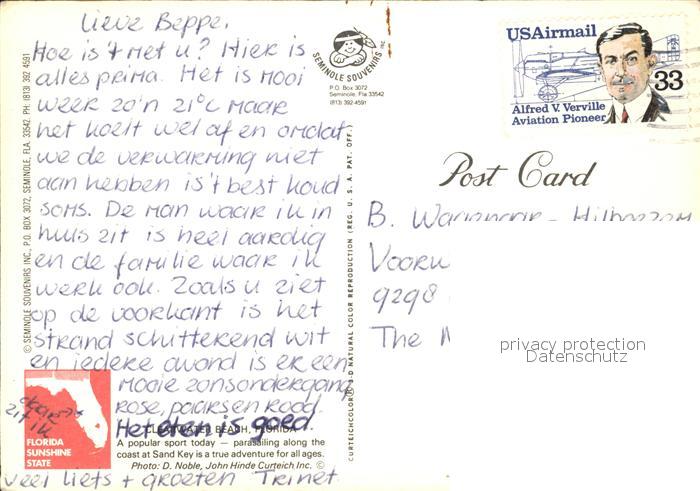 Lieve Beppe,
Hoe is 't met u? Hier is
alles prima. Het is mooi
weer zo'n 21°C maar
het koelt wel af en omdat
we de verwarming niet
aan hebben is 't best koud
soms. De man waar ik in
huis zit is heel aardig
en de familie waar ik
werk ook. Zoals u ziet
op de voorkant is het
strand schitterend wit
en iedere avond is er een
mooie zonsondergang
rose, paars en rood.
Het eten is goed.
veel liefs + groeten Trinet
daar
zit ik
FLORIDA
SUNSHINE
STATE
CLEARWATER BEACH, FLORIDA
A popular sport today — parasailing along the
coast at Sand Key is a true adventure for all ages.
Photo: D. Noble, John Hinde Curteich Inc. ©
© SEMINOLE SOUVENIRS INC., P.O. BOX 3072, SEMINOLE, FLA. 33542. PH. (813) 392 4591
SEMINOLE SOUVENIRS INC
P.O. Box 3072
Seminole, Fla 33542
(813) 392-4591
CURTEICHCOLOR® 3-D NATURAL COLOR REPRODUCTION (REG. U.S.A. PAT. OFF.)
USAirmail
33
Alfred V. Verville
Aviation Pioneer
Post Card
B. Wagenaar - 
Voorw
9298
The
privacy protection
Datenschutz